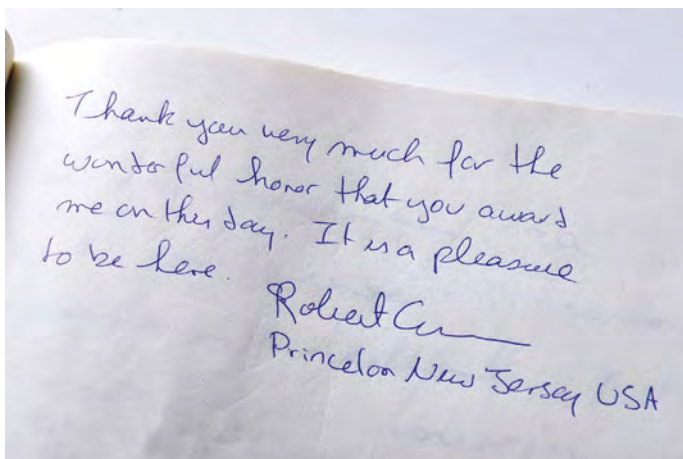 Thank you very much for the
wonderful honor that you award
me on this day. It is a pleasure
to be here.
Robert
Princeton New Jersey USA